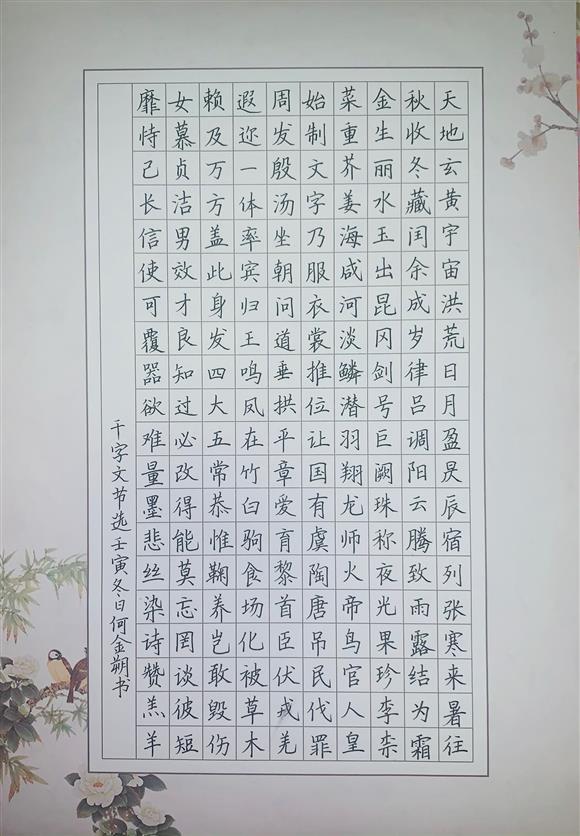 天地玄黄宇宙洪荒日月盈昃辰宿列张寒来暑往
秋收冬藏闰余成岁律吕调阳云腾致雨露结为霜
金生丽水玉出昆冈剑号巨阙珠称夜光果珍李柰
菜重芥姜海咸河淡鳞潜羽翔龙师火帝鸟官人皇
始制文字乃服衣裳推位让国有虞陶唐吊民伐罪
周发殷汤坐朝问道垂拱平章爱育黎首臣伏戎羌
遐迩一体率宾归王鸣凤在竹白驹食场化被草木
赖及万方盖此身发四大五常恭惟鞠养岂敢毁伤
女慕贞洁男效才良知过必改得能莫忘罔谈彼短
靡恃己长信使可覆器欲难量墨悲丝染诗赞羔羊
千字文节选壬寅冬日何金朔书